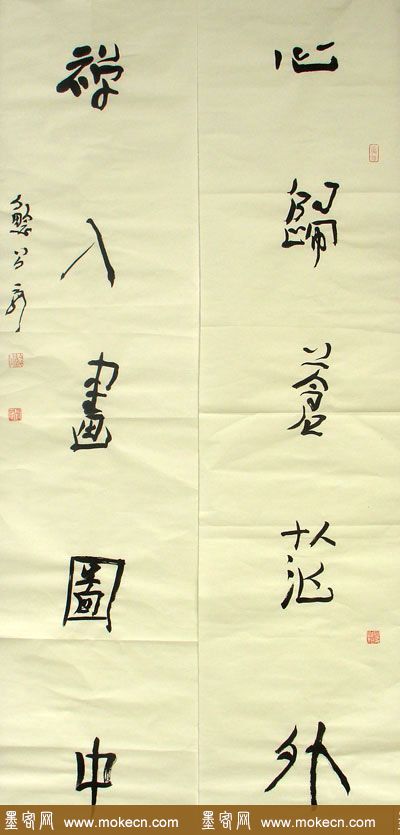 心歸蒼茫外
禪入畫圖中
墨客网 www.mokecn.com 墨客网 www.mokecn.com